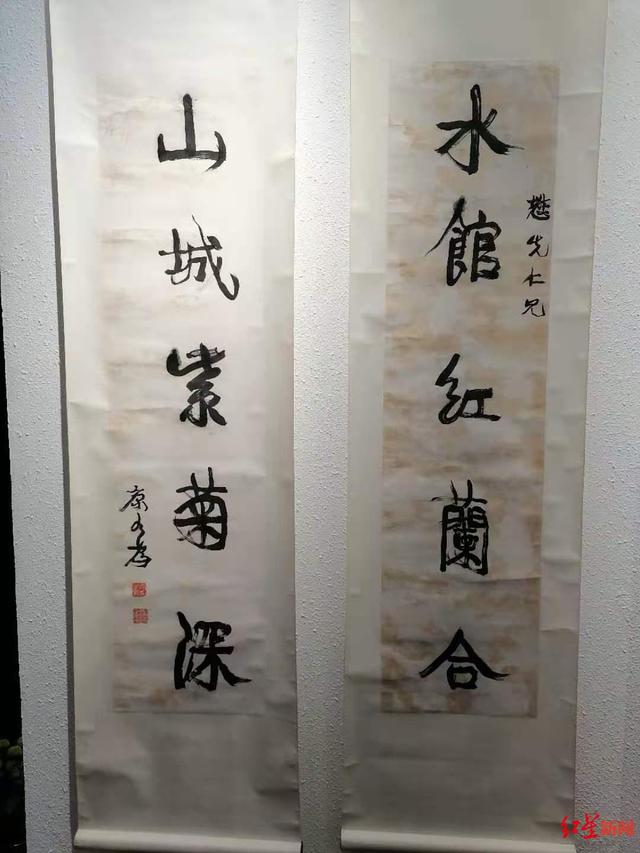 懋先仁兄
水館紅蘭合
山城紫菊深
康有為
红星新闻